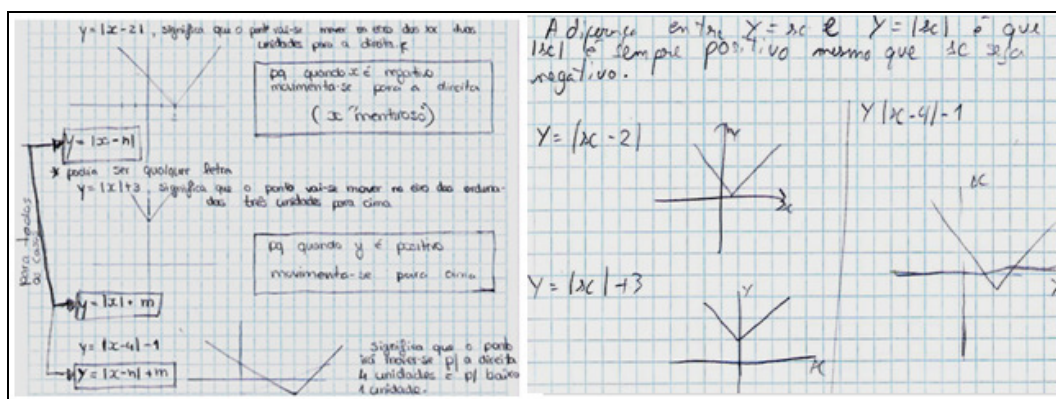 y = |x-2|, significa que o ponto vai-se mover no eixo dos xx duas
unidades para a direita.
pq quando x é negativo
movimenta-se para a direita
(x "mentiroso")
y = |x-n|
* podia ser qualquer letra
y = |x|+3, significa que o ponto vai-se mover no eixo das ordena-
das três unidades para cima
para todos
os casos
pq quando y é positivo
movimenta-se para cima
y = |x| + m
y = |x-4| -1
y = |x-n|+m
significa que o ponto
irá mover-se p/ a direita
4 unidades e p/ baixo
1 unidade.
A diferença entre y = x e y = |x| é que
|x| é sempre positivo mesmo que x seja
negativo.
Y = |x-2|
x
Y = |x|+3
Y
x
Y |x-4|-1
x